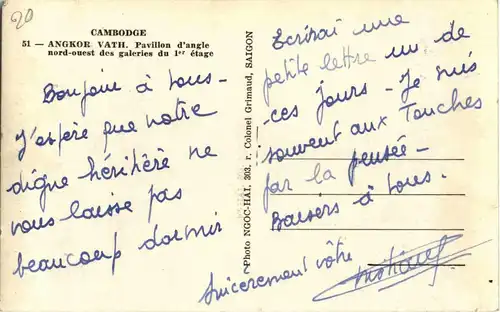 20
CAMBODGE
51 — ANGKOR VATH. Pavillon d'angle
nord-ouest des galeries du 1er étage
Bonjour à tous -
J'espère que notre
digne héritière ne
vous laisse pas
beaucoup dormir
Photo NGOC-HAI, 303, r. Colonel Grimaud, SAIGON
Ecrirai une
petite lettre un de
ces jours - Je suis
souvent aux Touches
par la pensée -
Baisers à tous.
Sincèrement vôtre